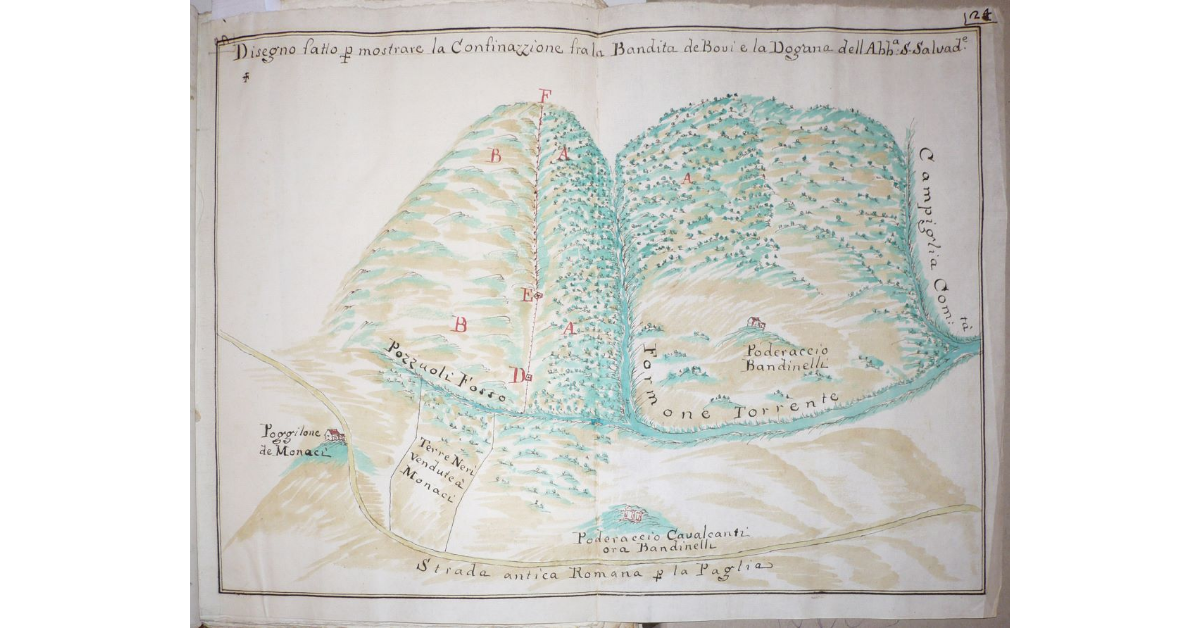 Disegno fatto p mostrare la Confinazzione fra la Bandita de Boui e la Dogana dell Abb.ª S. Saluad.e
F
B
A
A
Campiglia Comi tà
E
B
A
D
Pozzuoli Fosso
Formone Torrente
Poderaccio
Bandinelli
Poggilone
de Monaci
Terre Neri
Vendute à
Monaci
Poderaccio Caualcanti
ora Bandinelli
Strada antica Romana p la Paglia